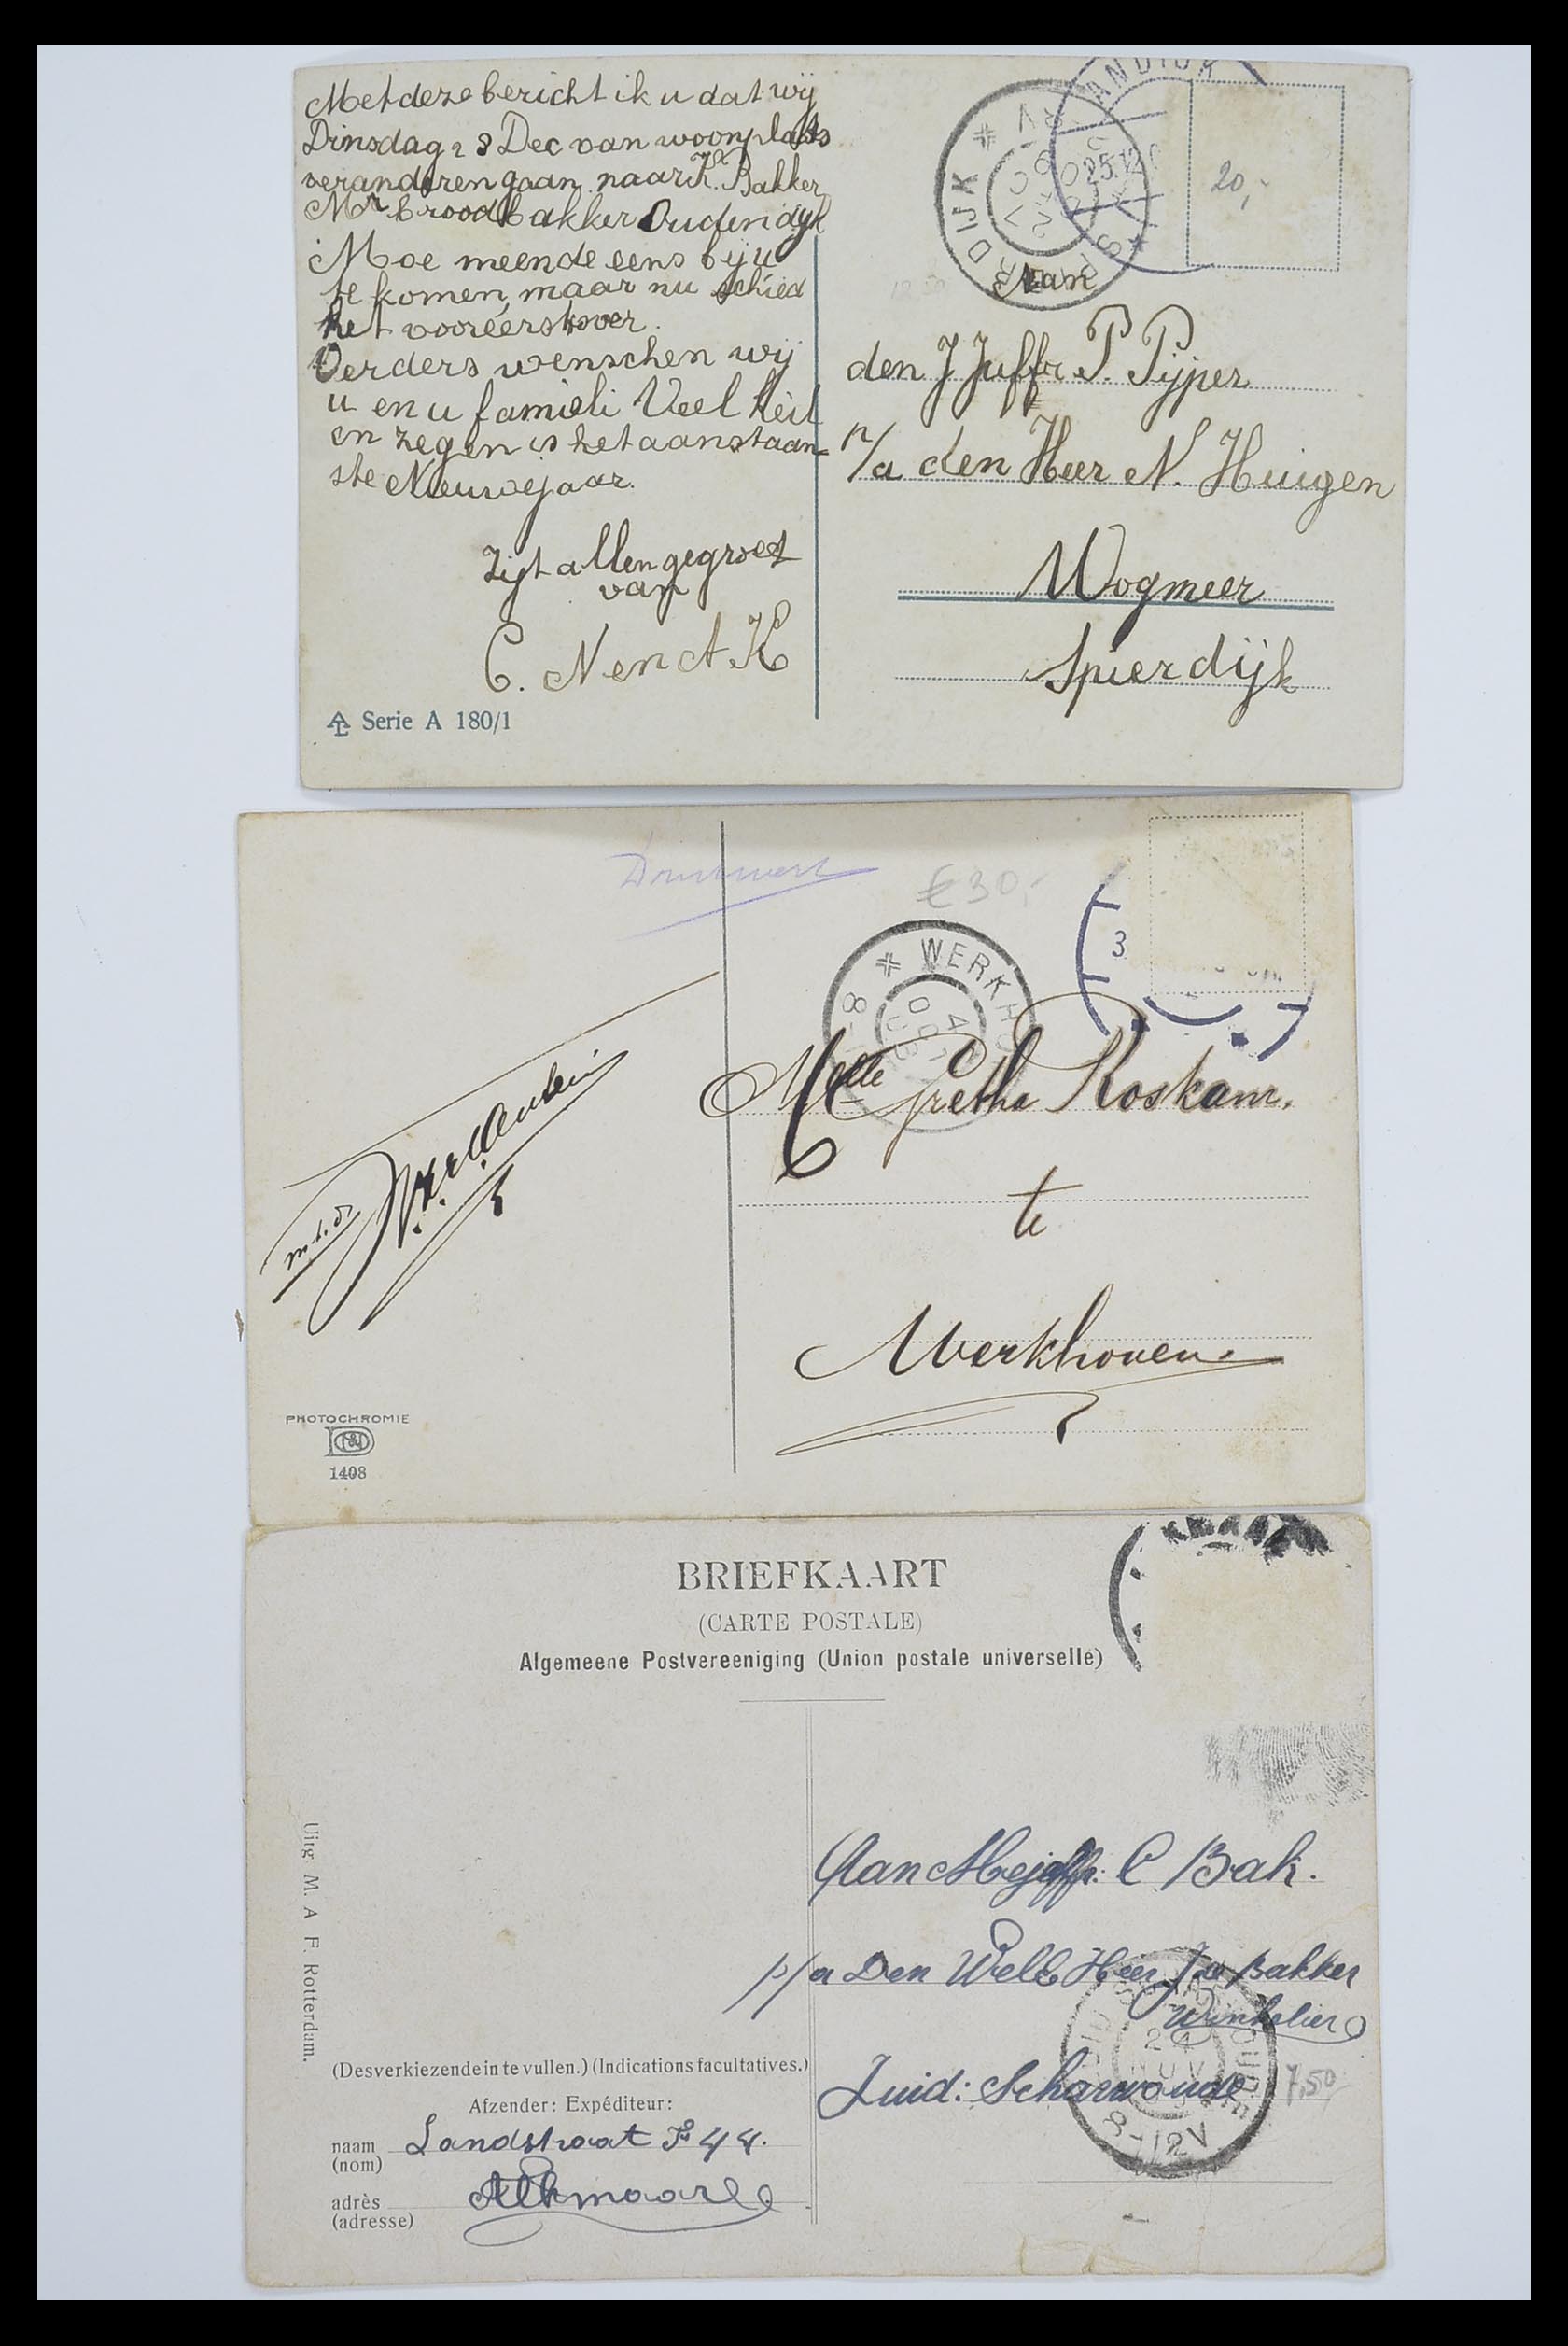 Met deze bericht ik u dat wij
Dinsdag 28 Dec van woonplaats
veranderen gaan naar K. Bakker
Mr broodbakker Oudendijk
Moe meende eens bij u
te komen maar nu schied
het vooréerst over.
Verders wenschen wij
u en u famieli Veel heil
en zegen is het aanstaan=
ste Nieuwejaar.
Zijt allen gegroet
van
C. N en A. K
Serie A 180/1
ANDIJK
25.12
SPIERDIJK
20,-
Aan
den J Juffr P. Pijper
p/a den Heer N. Huigen
Wogmeer
Spierdijk
€30,-
WERKHO
4
3
Melle Gretha Roskam.
te
Werkhoven.
m.b.d.
PHOTOCHROMIE
1408
BRIEFKAART
(CARTE POSTALE)
Algemeene Postvereeniging (Union postale universelle)
Uitg. M. A. F. Rotterdam.
Aan Mejuffr: C Bak.
p/a Den WelE Heer Jb Bakker
Winkelier
Zuid: Scharwoude
7,50
24
NOV
8-12V
(Desverkiezende in te vullen.) (Indications facultatives.)
Afzender: Expéditeur:
naam Landstraat No 44.
(nom)
adrès Alkmaar
(adresse)